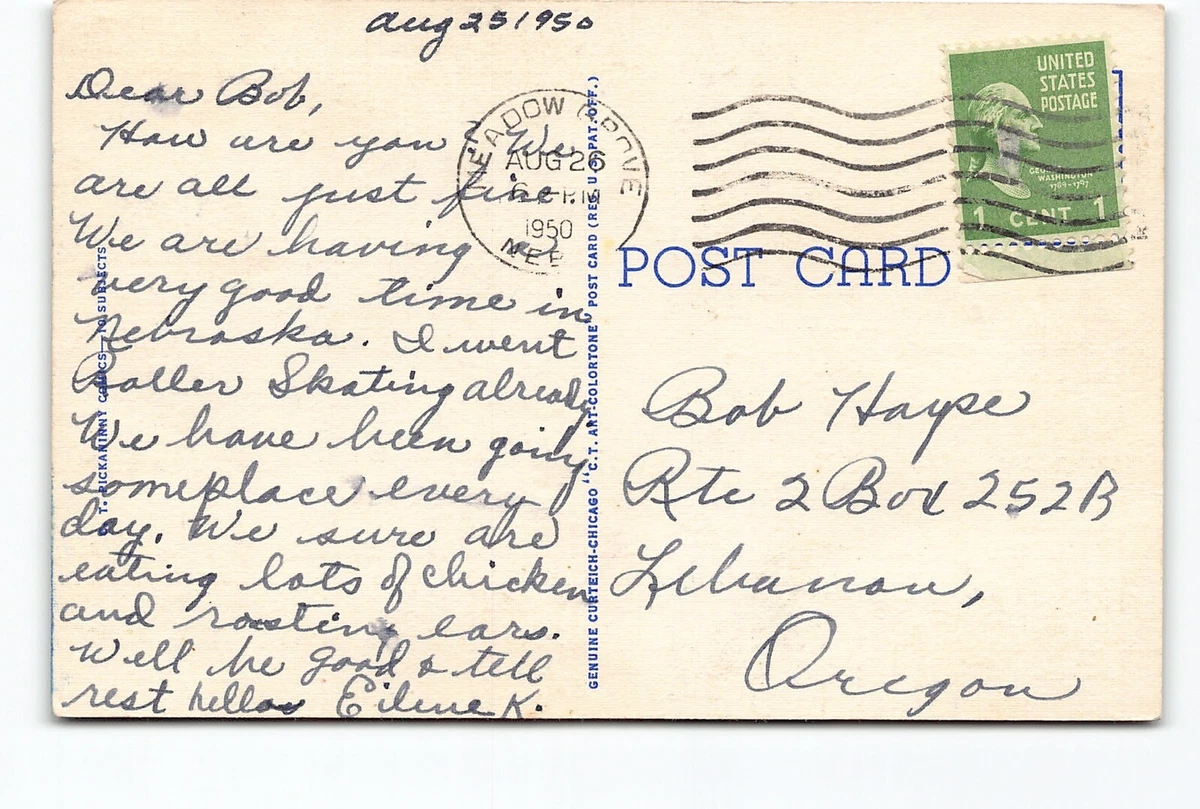 Aug 25 1950
Dear Bob,
How are you? We
are all just fine.
We are having
very good time in
Nebraska. I went
Roller Skating already.
We have been going
someplace every
day. We sure are
eating lots of chicken
and rosting ears.
Well be good & tell
rest hello Eilene K.
T. PICKANINNY COMICS—10 SUBJECTS
GENUINE CURTEICH-CHICAGO "C.T. ART-COLORTONE" POST CARD (REG. U.S. PAT. OFF.)
MEADOW GROVE
AUG 26
6 PM
1950
NEB
UNITED
STATES
POSTAGE
GEORGE
WASHINGTON
1789-1797
1 CENT 1
POST CARD
Bob Hayse
Rte 2 Box 252B
Lebanon,
Oregon